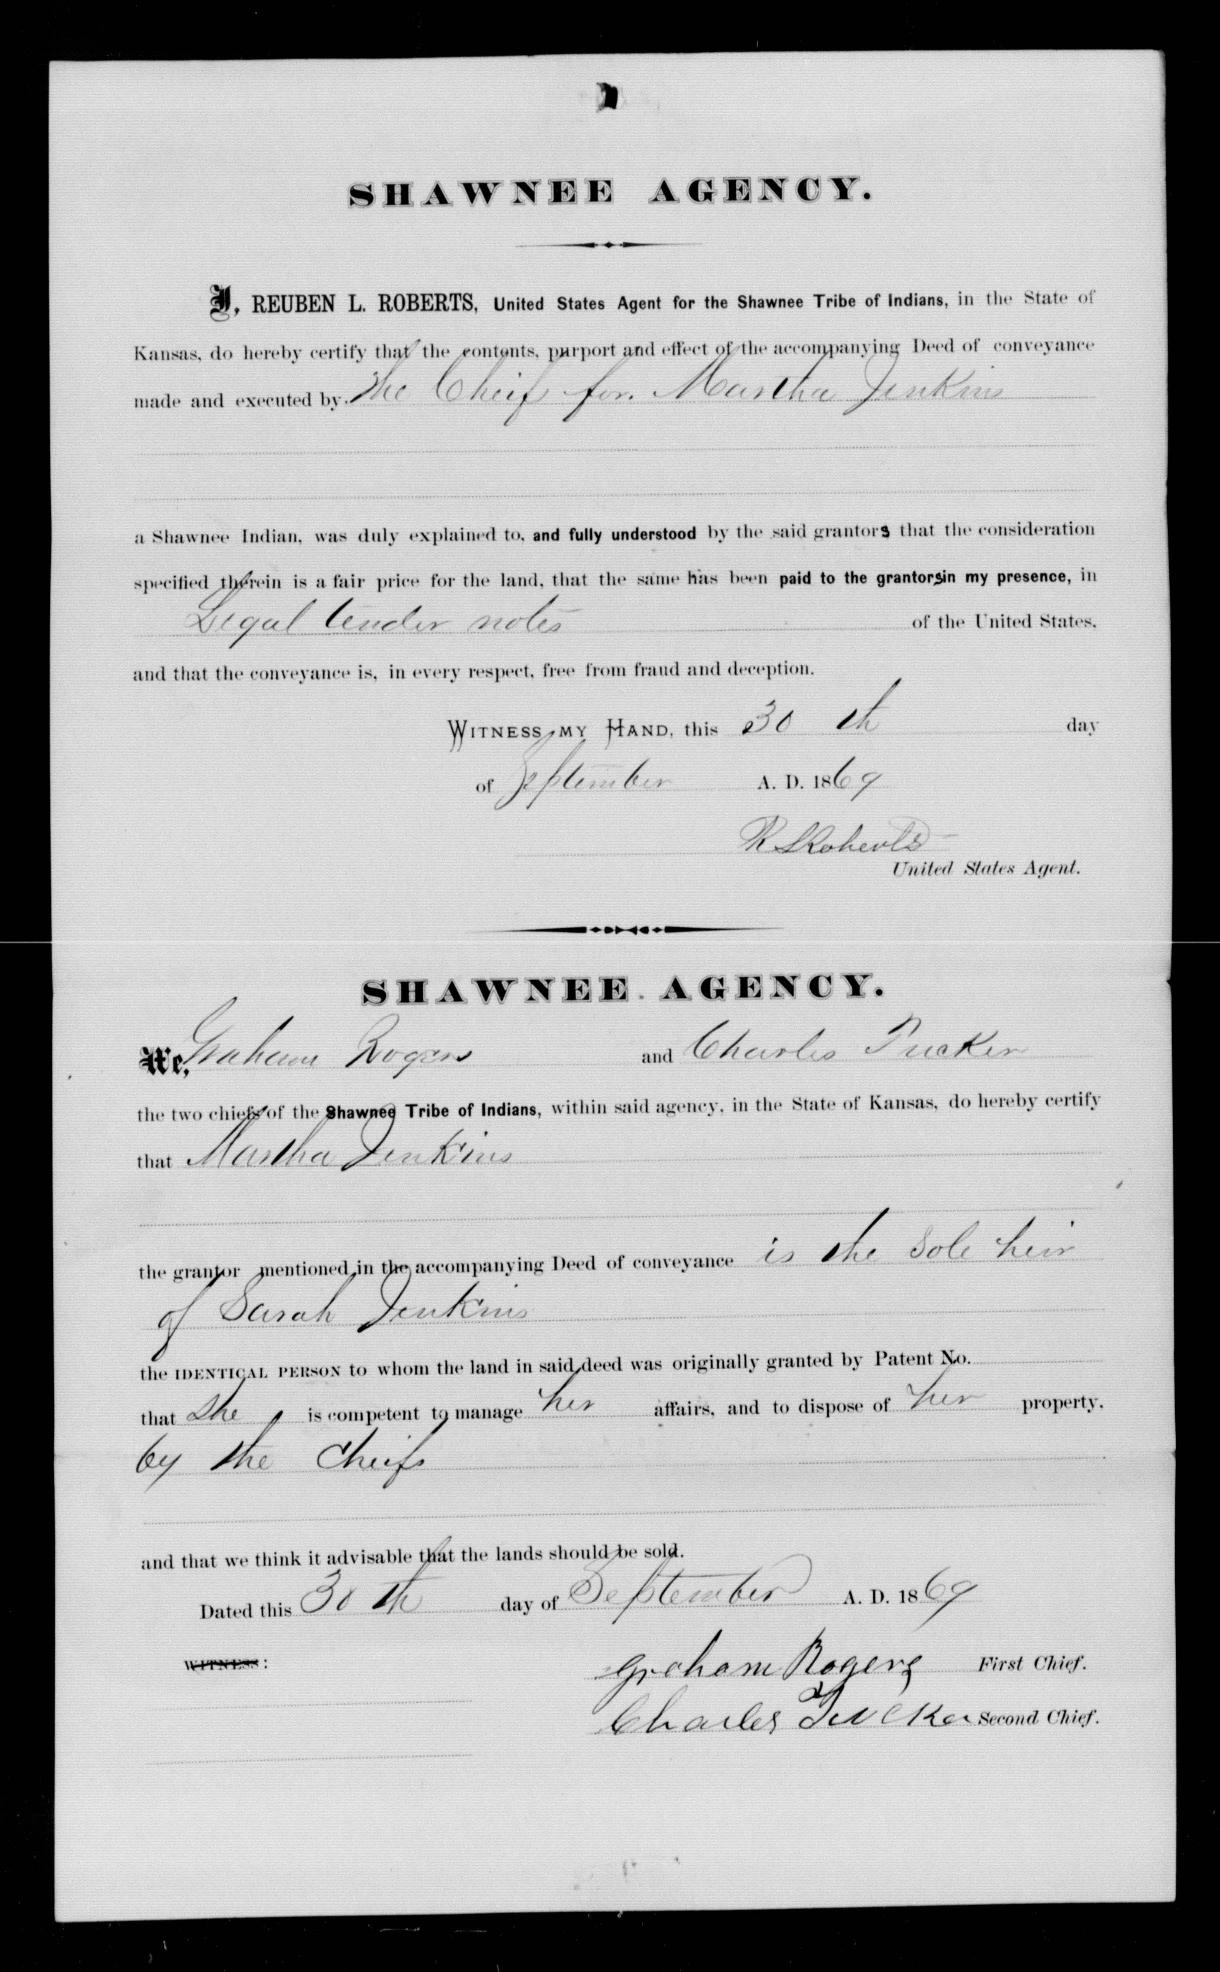 SHAWNEE AGENCY.
I, REUBEN L. ROBERTS, United States Agent for the Shawnee Tribe of Indians, in the State of
Kansas, do hereby certify that the contents, purport and effect of the accompanying Deed of conveyance
made and executed by. The Cheifs for. Martha Jenkins
a Shawnee Indian, was duly explained to, and fully understood by the said grantors that the consideration
specified therein is a fair price for the land, that the same has been paid to the grantors in my presence, in
Legal tender notes of the United States,
and that the conveyance is, in every respect, free from fraud and deception.
WITNESS MY HAND, this 30 th day
of September A. D. 1869
R L Roberts
United States Agent.
SHAWNEE AGENCY.
We, Graham Rogers and Charles Tucker
the two chiefs of the Shawnee Tribe of Indians, within said agency, in the State of Kansas, do hereby certify
that Martha Jenkins
the grantor mentioned in the accompanying Deed of conveyance is the Sole heir
of Sarah Jenkins
the IDENTICAL PERSON to whom the land in said deed was originally granted by Patent No.
that she is competent to manage her affairs, and to dispose of her property,
by the Cheifs
and that we think it advisable that the lands should be sold.
Dated this 30 th day of September A. D. 1869
WITNESS:
Graham Rogers First Chief.
Charles Tucker Second Chief.